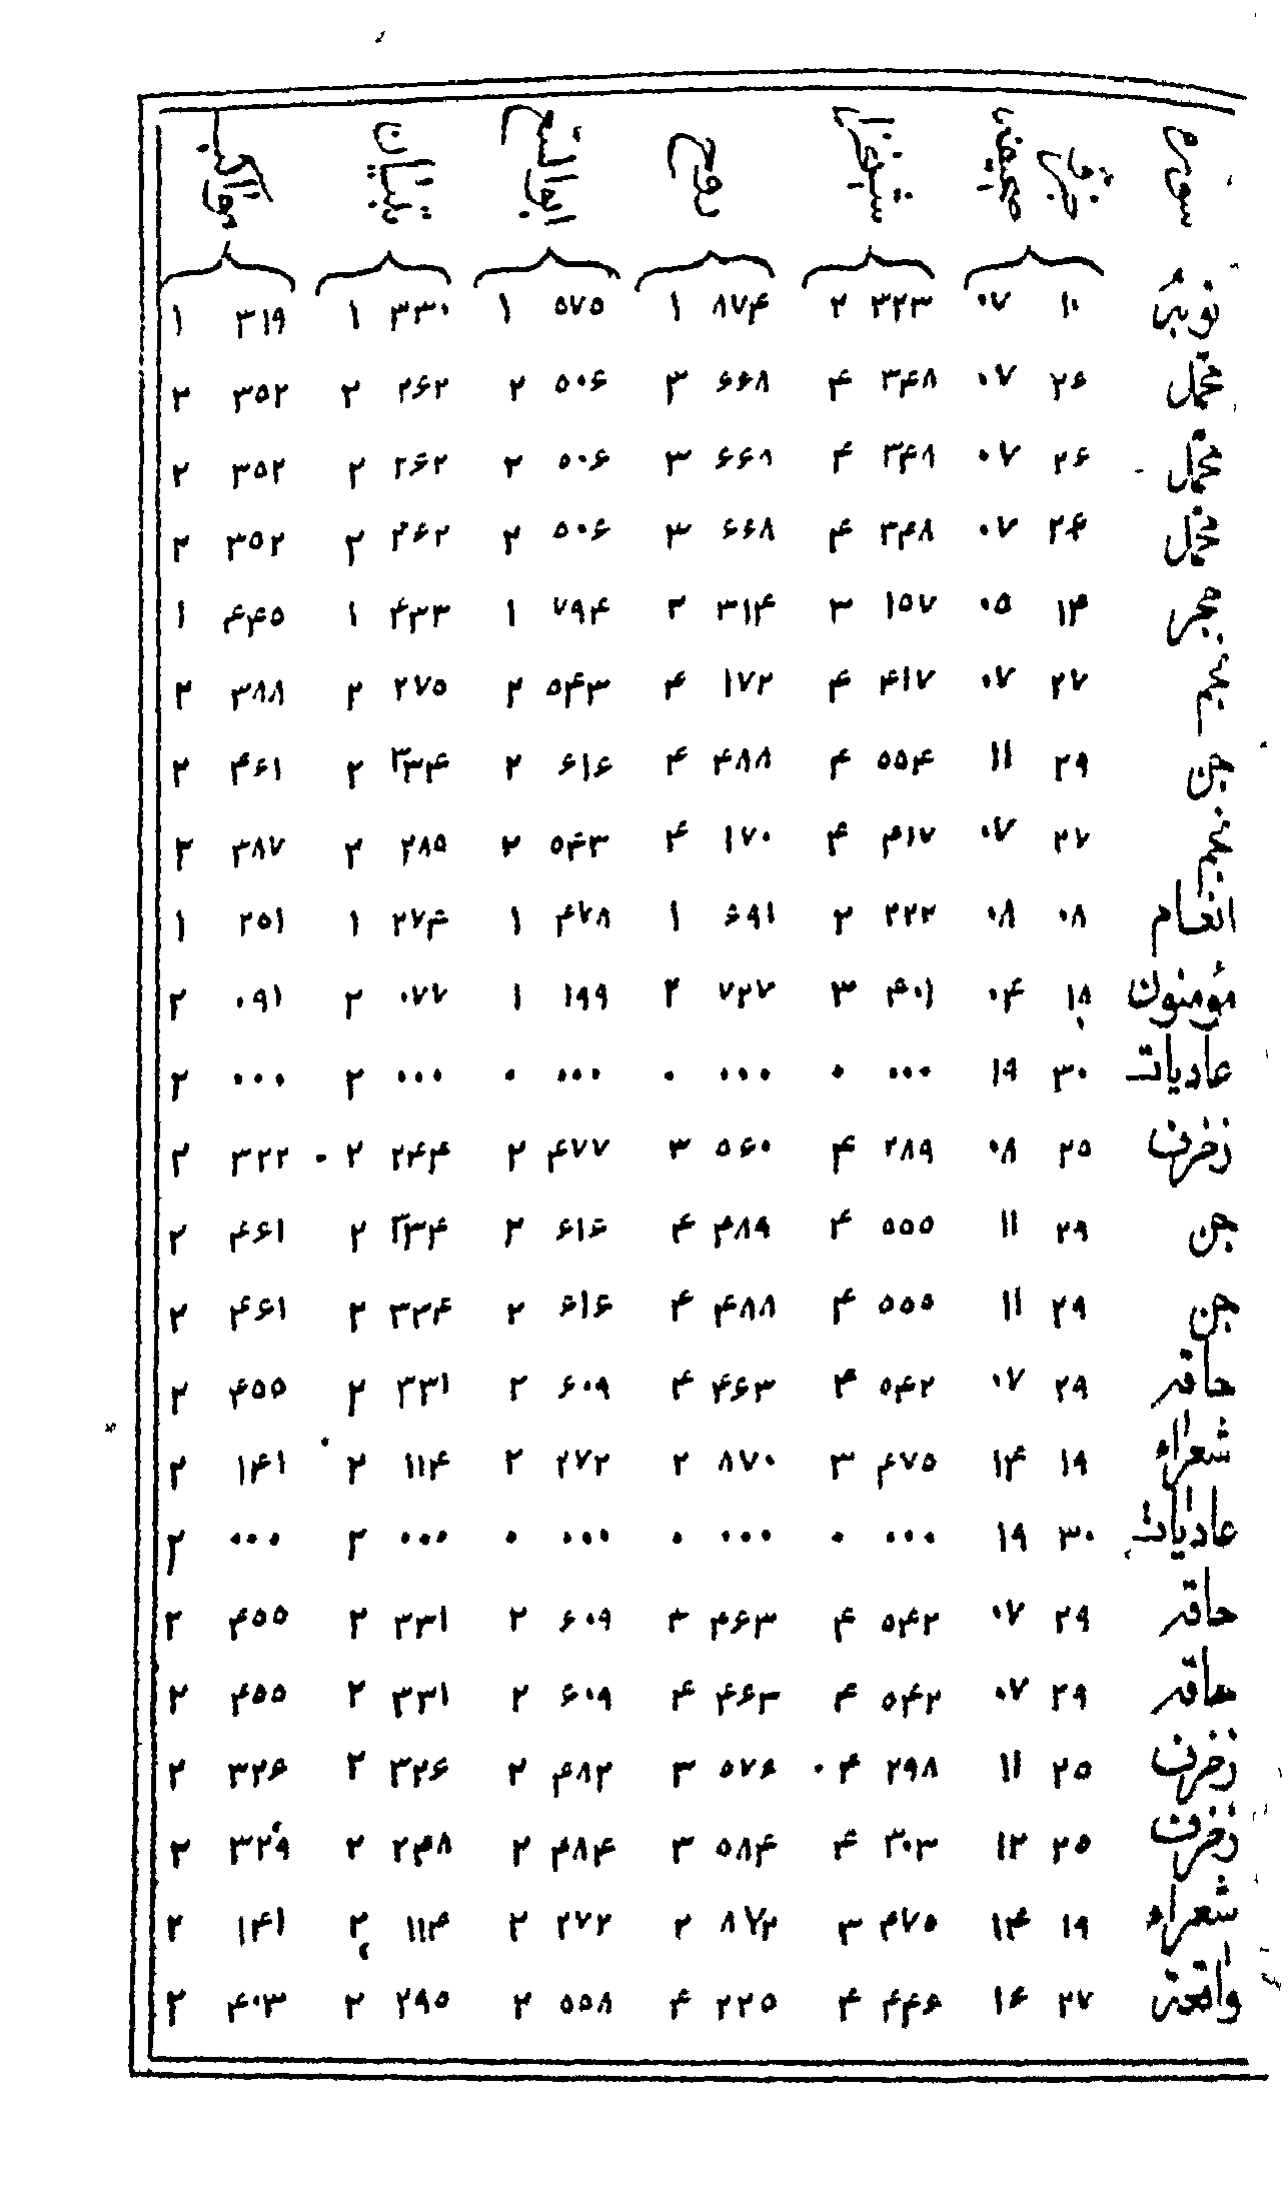 سوره جزؤ صحیفه شیخزاده روح ابوالسعود تبیان مواکب
توبه ۱۰ ۰۷ ۳۲۳ ۲ ۸۷۴ ۱ ۵۷۵ ۱ ۳۳۰ ۱ ۳۱۹ ۱
محمّد ۲۶ ۰۷ ۳۴۸ ۴ ۶۶۸ ۳ ۵۰۶ ۲ ۲۶۲ ۲ ۳۵۲ ۲
محمّد ۲۶ ۰۷ ۳۴۸ ۴ ۶۶۸ ۳ ۵۰۶ ۲ ۲۶۲ ۲ ۳۵۲ ۲
محمّد ۲۶ ۰۷ ۳۴۸ ۴ ۶۶۸ ۳ ۵۰۶ ۲ ۲۶۲ ۲ ۳۵۲ ۲
حجر ۱۴ ۰۵ ۱۵۷ ۳ ۳۱۴ ۲ ۷۹۴ ۱ ۴۳۳ ۱ ۴۴۵ ۱
نجم ۲۷ ۰۷ ۴۱۷ ۴ ۱۷۲ ۴ ۵۴۳ ۲ ۲۷۵ ۲ ۳۸۸ ۲
جن ۲۹ ۱۱ ۵۵۴ ۴ ۴۸۸ ۴ ۶۱۶ ۲ ۳۳۴ ۲ ۴۶۱ ۲
نجم ۲۷ ۰۷ ۴۱۷ ۴ ۱۷۰ ۴ ۵۴۳ ۲ ۲۸۵ ۲ ۳۸۷ ۲
انعام ۰۸ ۰۸ ۲۲۲ ۲ ۶۹۱ ۱ ۴۷۸ ۱ ۲۷۴ ۱ ۲۵۱ ۱
مؤمنون ۱۸ ۰۴ ۴۰۱ ۳ ۷۲۷ ۲ ۱۹۹ ۱ ۰۷۷ ۲ ۰۹۱ ۲
عادیات ۳۰ ۱۹ ۰۰۰ ۰ ۰۰۰ ۰ ۰۰۰ ۰ ۰۰۰ ۲ ۰۰۰ ۲
زخرف ۲۵ ۰۸ ۲۸۹ ۴ ۵۶۰ ۳ ۴۷۷ ۲ ۲۴۴ ۲ ۳۲۲ ۲
جن ۲۹ ۱۱ ۵۵۵ ۴ ۴۸۹ ۴ ۶۱۶ ۲ ۳۳۴ ۲ ۴۶۱ ۲
جن ۲۹ ۱۱ ۵۵۵ ۴ ۴۸۸ ۴ ۶۱۶ ۲ ۳۳۴ ۲ ۴۶۱ ۲
حاقه ۲۹ ۰۷ ۵۴۲ ۴ ۴۶۳ ۴ ۶۰۹ ۲ ۳۳۱ ۲ ۴۵۵ ۲
شعراء ۱۹ ۱۴ ۴۷۵ ۳ ۸۷۰ ۲ ۲۷۲ ۲ ۱۱۴ ۲ ۱۴۱ ۲
عادیات ۳۰ ۱۹ ۰۰۰ ۰ ۰۰۰ ۰ ۰۰۰ ۰ ۰۰۰ ۲ ۰۰۰ ۲
حاقه ۲۹ ۰۷ ۵۴۲ ۴ ۴۶۳ ۴ ۶۰۹ ۲ ۳۳۱ ۲ ۴۵۵ ۲
حاقه ۲۹ ۰۷ ۵۴۲ ۴ ۴۶۳ ۴ ۶۰۹ ۲ ۳۳۱ ۲ ۴۵۵ ۲
زخرف ۲۵ ۱۱ ۲۹۸ ۴ ۵۷۶ ۳ ۴۸۲ ۲ ۳۲۶ ۲ ۳۲۶ ۲
زخرف ۲۵ ۱۲ ۳۰۳ ۴ ۵۸۴ ۳ ۴۸۴ ۲ ۲۴۸ ۲ ۳۲۹ ۲
شعراء ۱۹ ۱۴ ۴۷۵ ۳ ۸۷۲ ۲ ۲۷۲ ۲ ۱۱۴ ۲ ۱۴۱ ۲
واقعة ۲۷ ۱۶ ۴۴۶ ۴ ۲۲۵ ۴ ۵۵۸ ۲ ۲۹۵ ۲ ۴۰۳ ۲